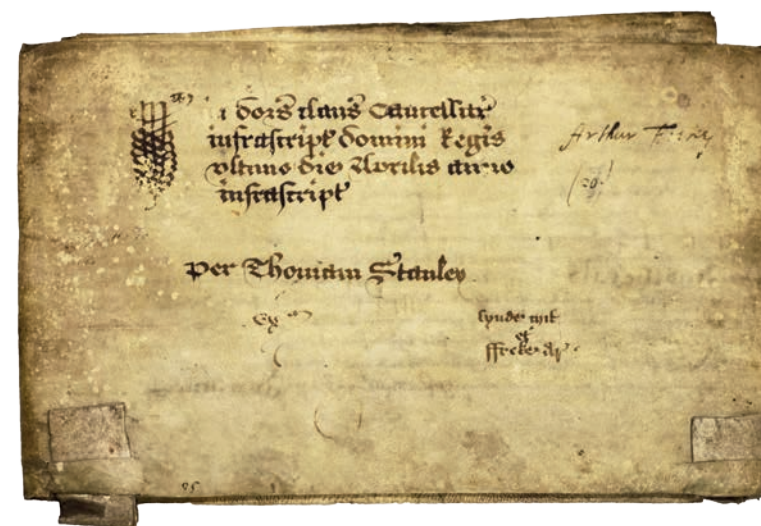 i dors claus Cancellar
infrascript domini Regis
vltimo die Aprilis anno
infrascript
Arthur
(20)
per Thomam Stanley
Ex
et